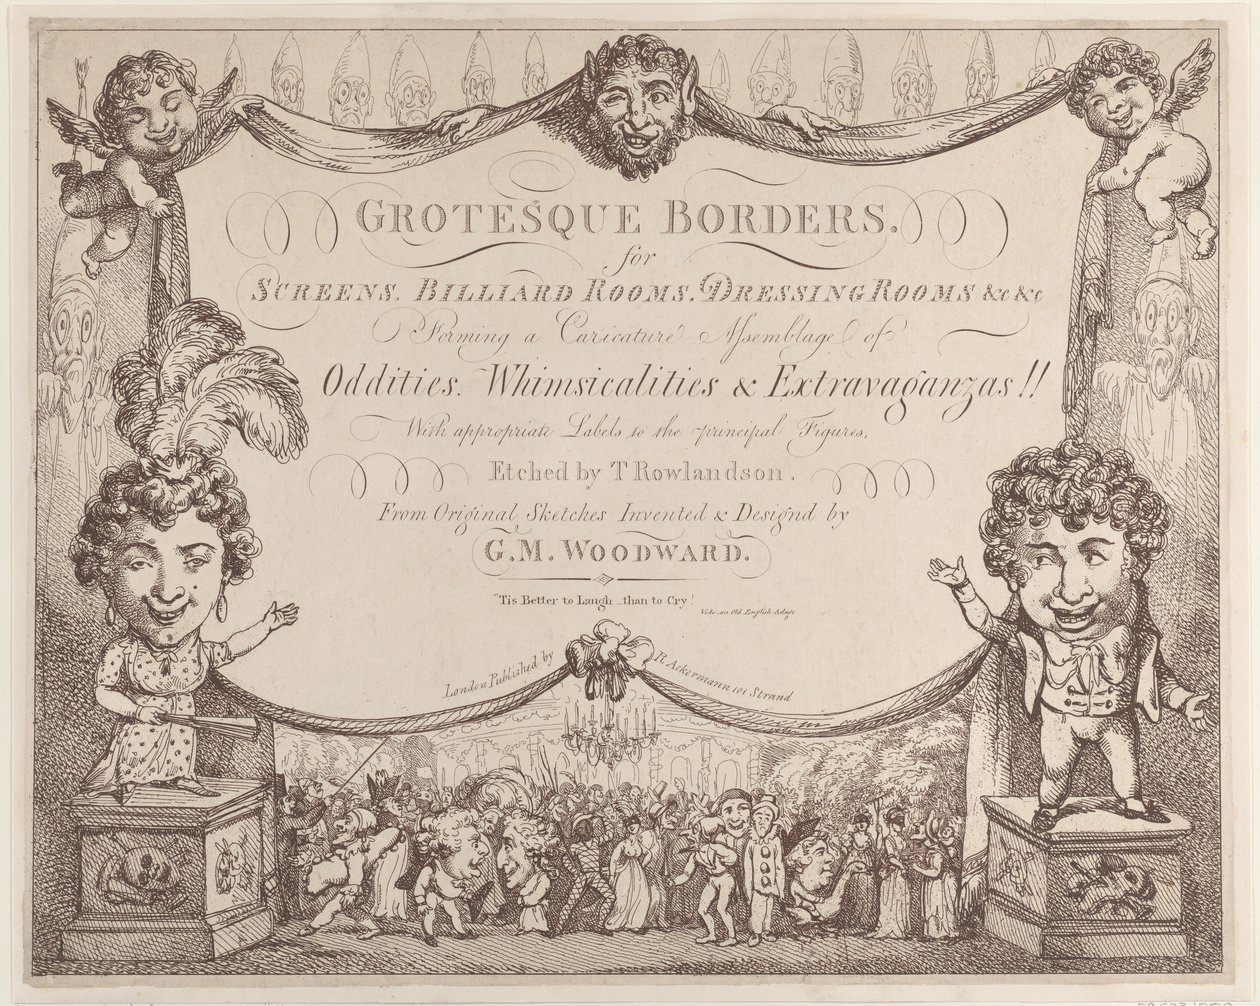 GROTESQUE BORDERS.
for
SCREENS. BILLIARD ROOMS. DRESSING ROOMS &c &c
Forming a Caricature Assemblage of
Oddities. Whimsicalities & Extravaganzas!!
With appropriate Labels to the principal Figures,
Etched by T Rowlandson.
From Original Sketches Invented & Design'd by
G. M. WOODWARD.
"Tis Better to Laugh than to Cry!
Vide an Old English Adage
London Published by R Ackermann 101 Strand